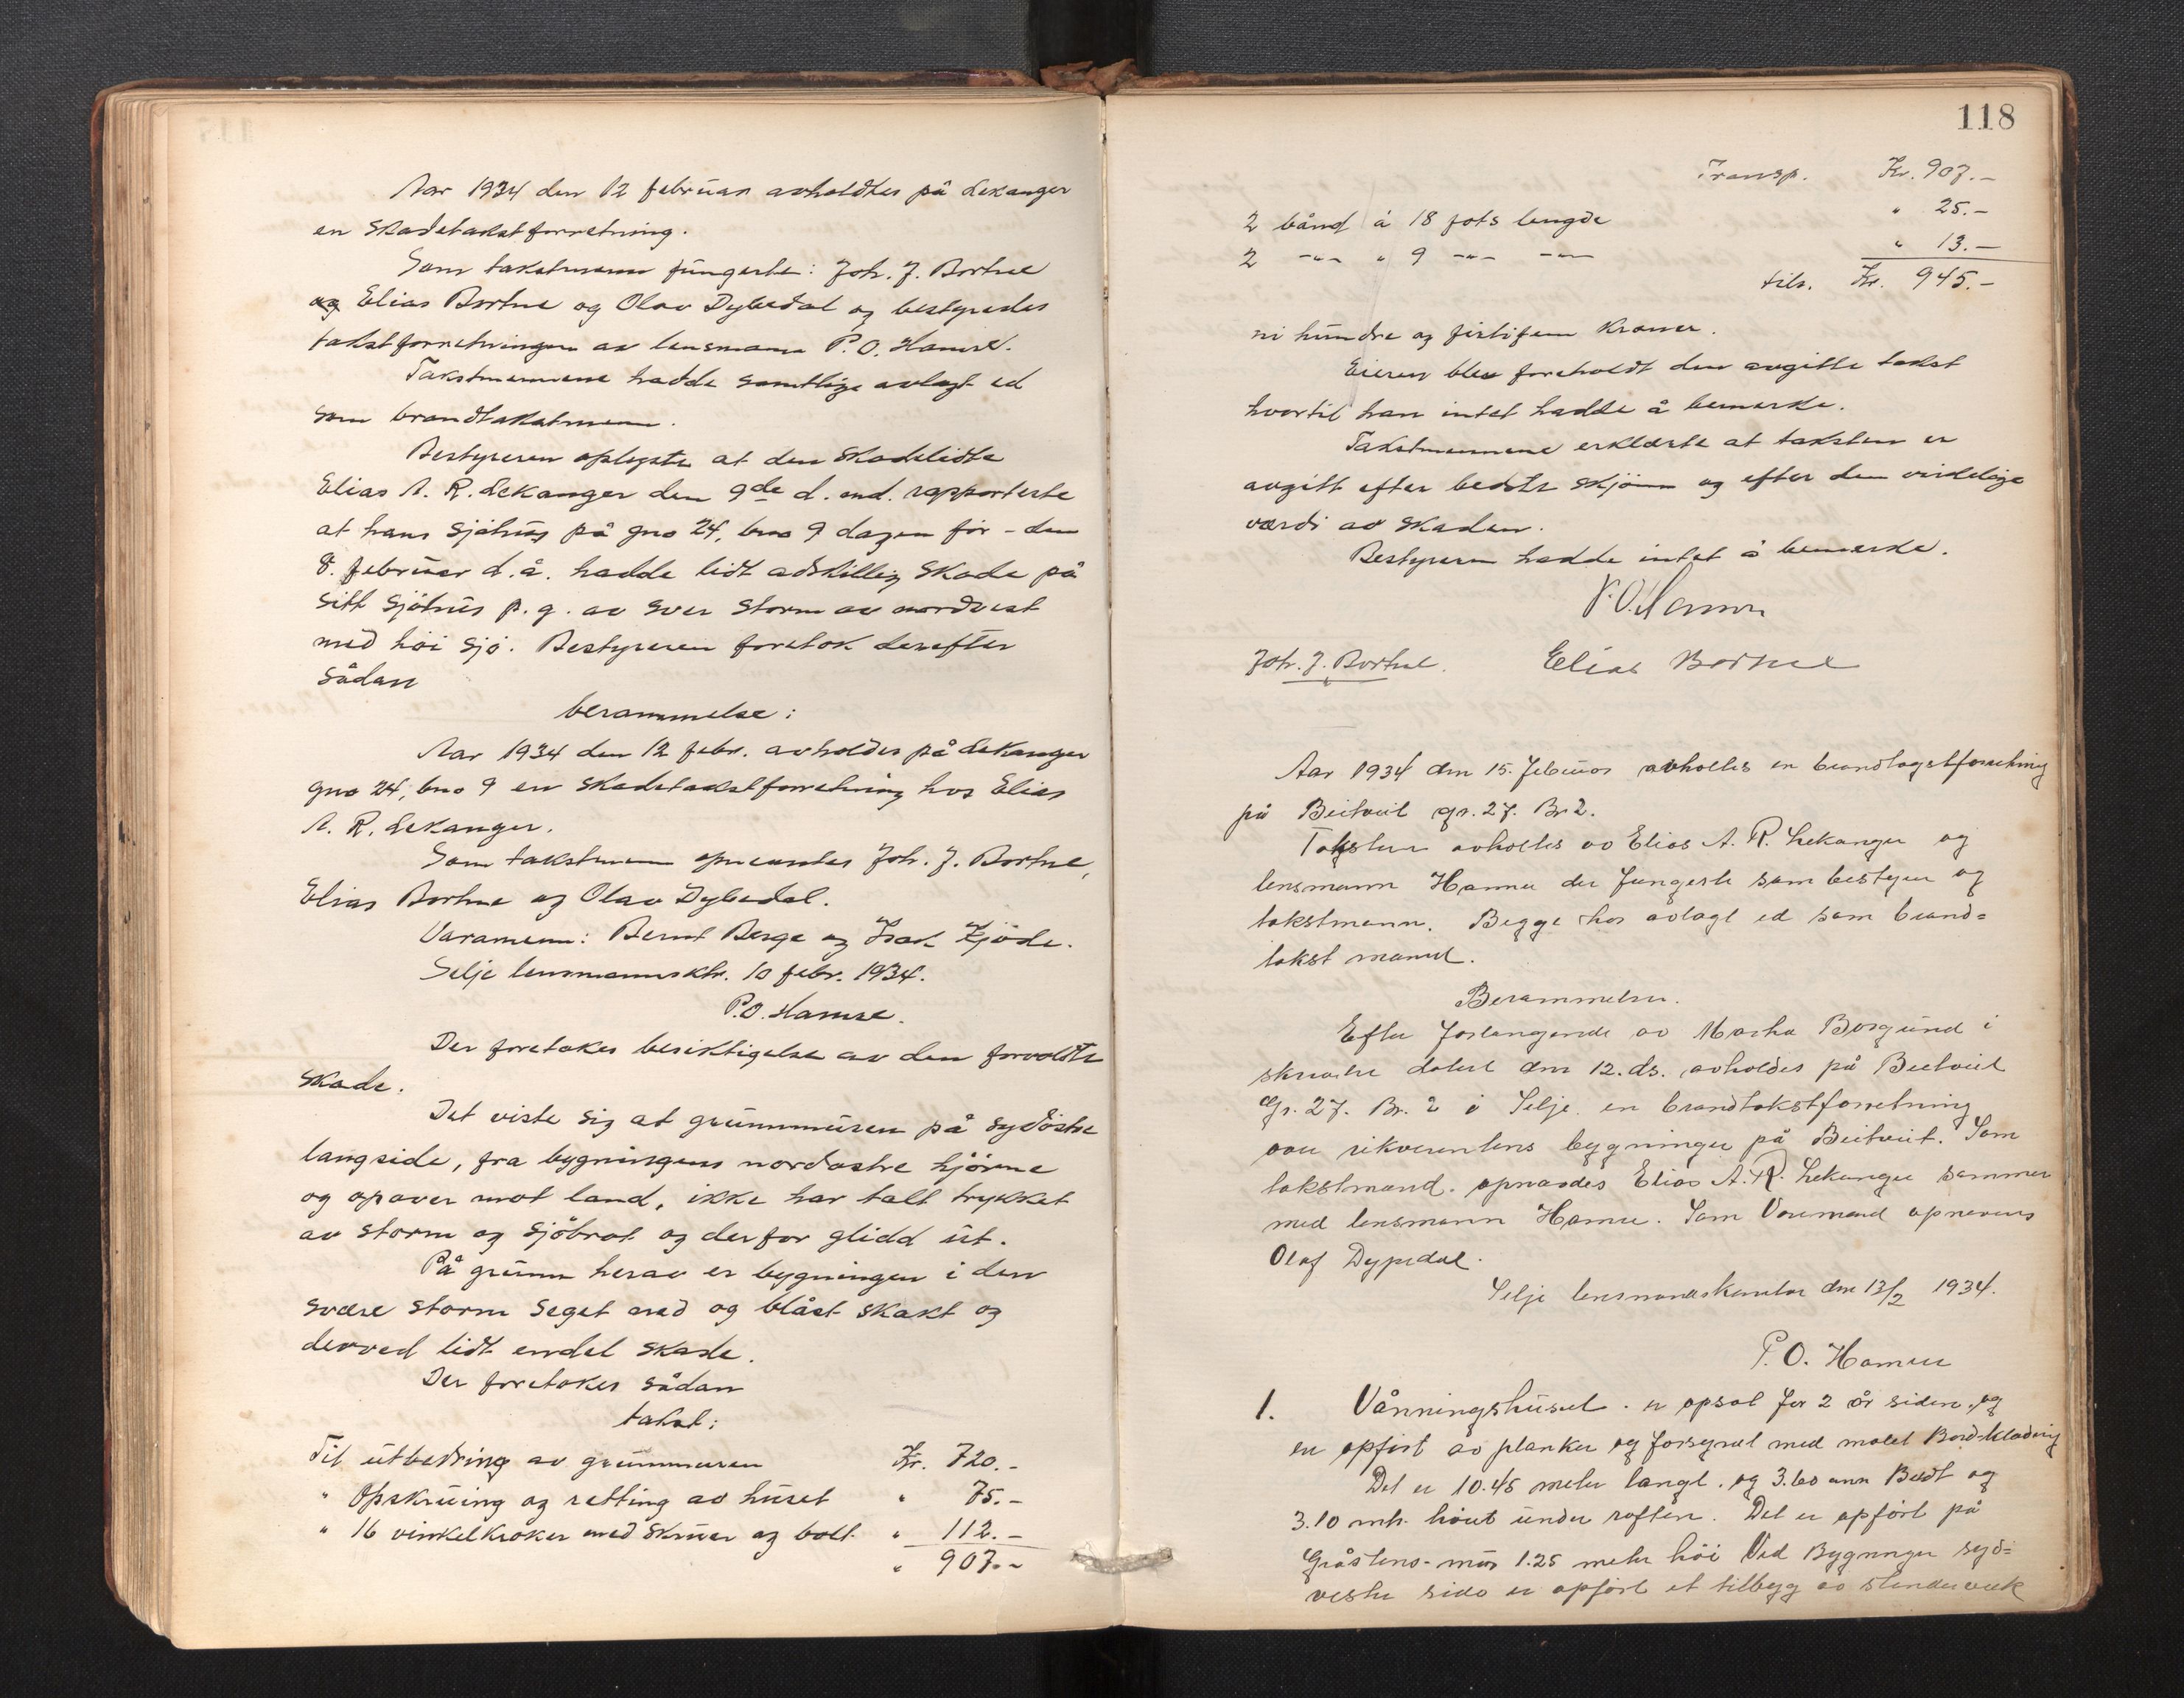 Aar 1934 den 12 februar avholdtes på Lekanger
en skadetakstforretning.
Som takstmenn fungerte: Joh. J. Borthne
og Elias Borthne og Olav Dybedal og bestyredes
takstforretningen av lensmann P. O. Hamre.
Takstmennene hadde samtlige avlagt ed
som brandtakstmenn.
Bestyreren oplyste at den skadelidte
Elias A. R. Lekanger den 9de d. md. rapporterte
at hans sjöhus på gno 24, bno 9 dagen för - den
8. februar d.å. hadde lidt adskillig skade på
sitt sjöhus p.g. av svær storm av nordvest
med höi sjö. Bestyreren foretok derefter
sådan
berammelse:
Aar 1934 den 12 febr. avholdes på Lekanger
gno 24, bno 9 en skadetakstforretning hos Elias
A. R. Lekanger.
Som takstmenn opnevntes Joh. J. Borthne,
Elias Borthne og Olav Dybedal.
Varamenn: Bernt Berge og Isak Kjöde.
Selje lensmannsktr. 10 febr. 1934.
P.O. Hamre.
Der foretokes besiktigelse av den forvoldte
skade.
Det viste sig at grunnmuren på sydöstre
langside, fra bygningens nordostre hjörne
og opover mot land, ikke har tålt trykket
av storm og sjöbrot og derfor glidd ut.
På grunn herav er bygningen i den
svære storm seget ned og blåst skakt og
derved lidt endel skade.
Der foretokes sådan
takst:
Til utbedring av grunnmuren Kr. 720.-
" Opskruing og retting av huset " 75.-
" 16 vinkelkroker med skruer og bolt " 112.-
" 907.-
118
Transp. Kr. 907.-
2 bånd á 18 fots lengde " 25.-
2 -"- " 9 -"- -"- " 13.-
tils. Kr. 945.-
ni hundre og firtifem kroner.
Eieren blev foreholdt den avgitte takst
hvortil han intet hadde å bemerke.
Takstmennene erklærte at taksten er
avgitt efter bedste skjönn og efter den virkelige
værdi av skaden.
Bestyreren hadde intet å bemerke.
P.O. Hamre
Joh. J. Borthne. Elias Borthne
Aar 1934 den 15. Februar avholtes en brandtagstforretning
på Beitveit gr. 27. Br 2.
Taksten avholtes av Elias A. R. Lekanger og
lensmann Hamre der fungerte som bestyrer og
takstmann. Begge har avlagt ed som brand=
takst mannd.
Berammelsen.
Efter forlangende av Martha Borgund i
skrivelse datert den 12. ds. avholdes på Beitveit
Gr. 27. Br. 2 i Selje en brandtakstforretning
over rikverentens bygninger på Beitveit. Som
takstmand. opnævdes Elias A. R. Lekanger sammen
med lensmann Hamre. Som Varemand opnevnes
Olaf Dypedal.
Selje lensmandskontor den 13/2 1934.
P. O. Hamre
1. Vånningshuset. er opsat for 2 år siden. og
er opfört av planker og forsynet med malet Bord-kledning
Det er 10.45 meter langt. og 3.60 Bredt og
3.10 mtr. höit under raften. Det er opfört på
Gråstens-mur 1.25 meter höi Ved Bygningen syd=
vestre side er opfört et tilbygg av stenderverk